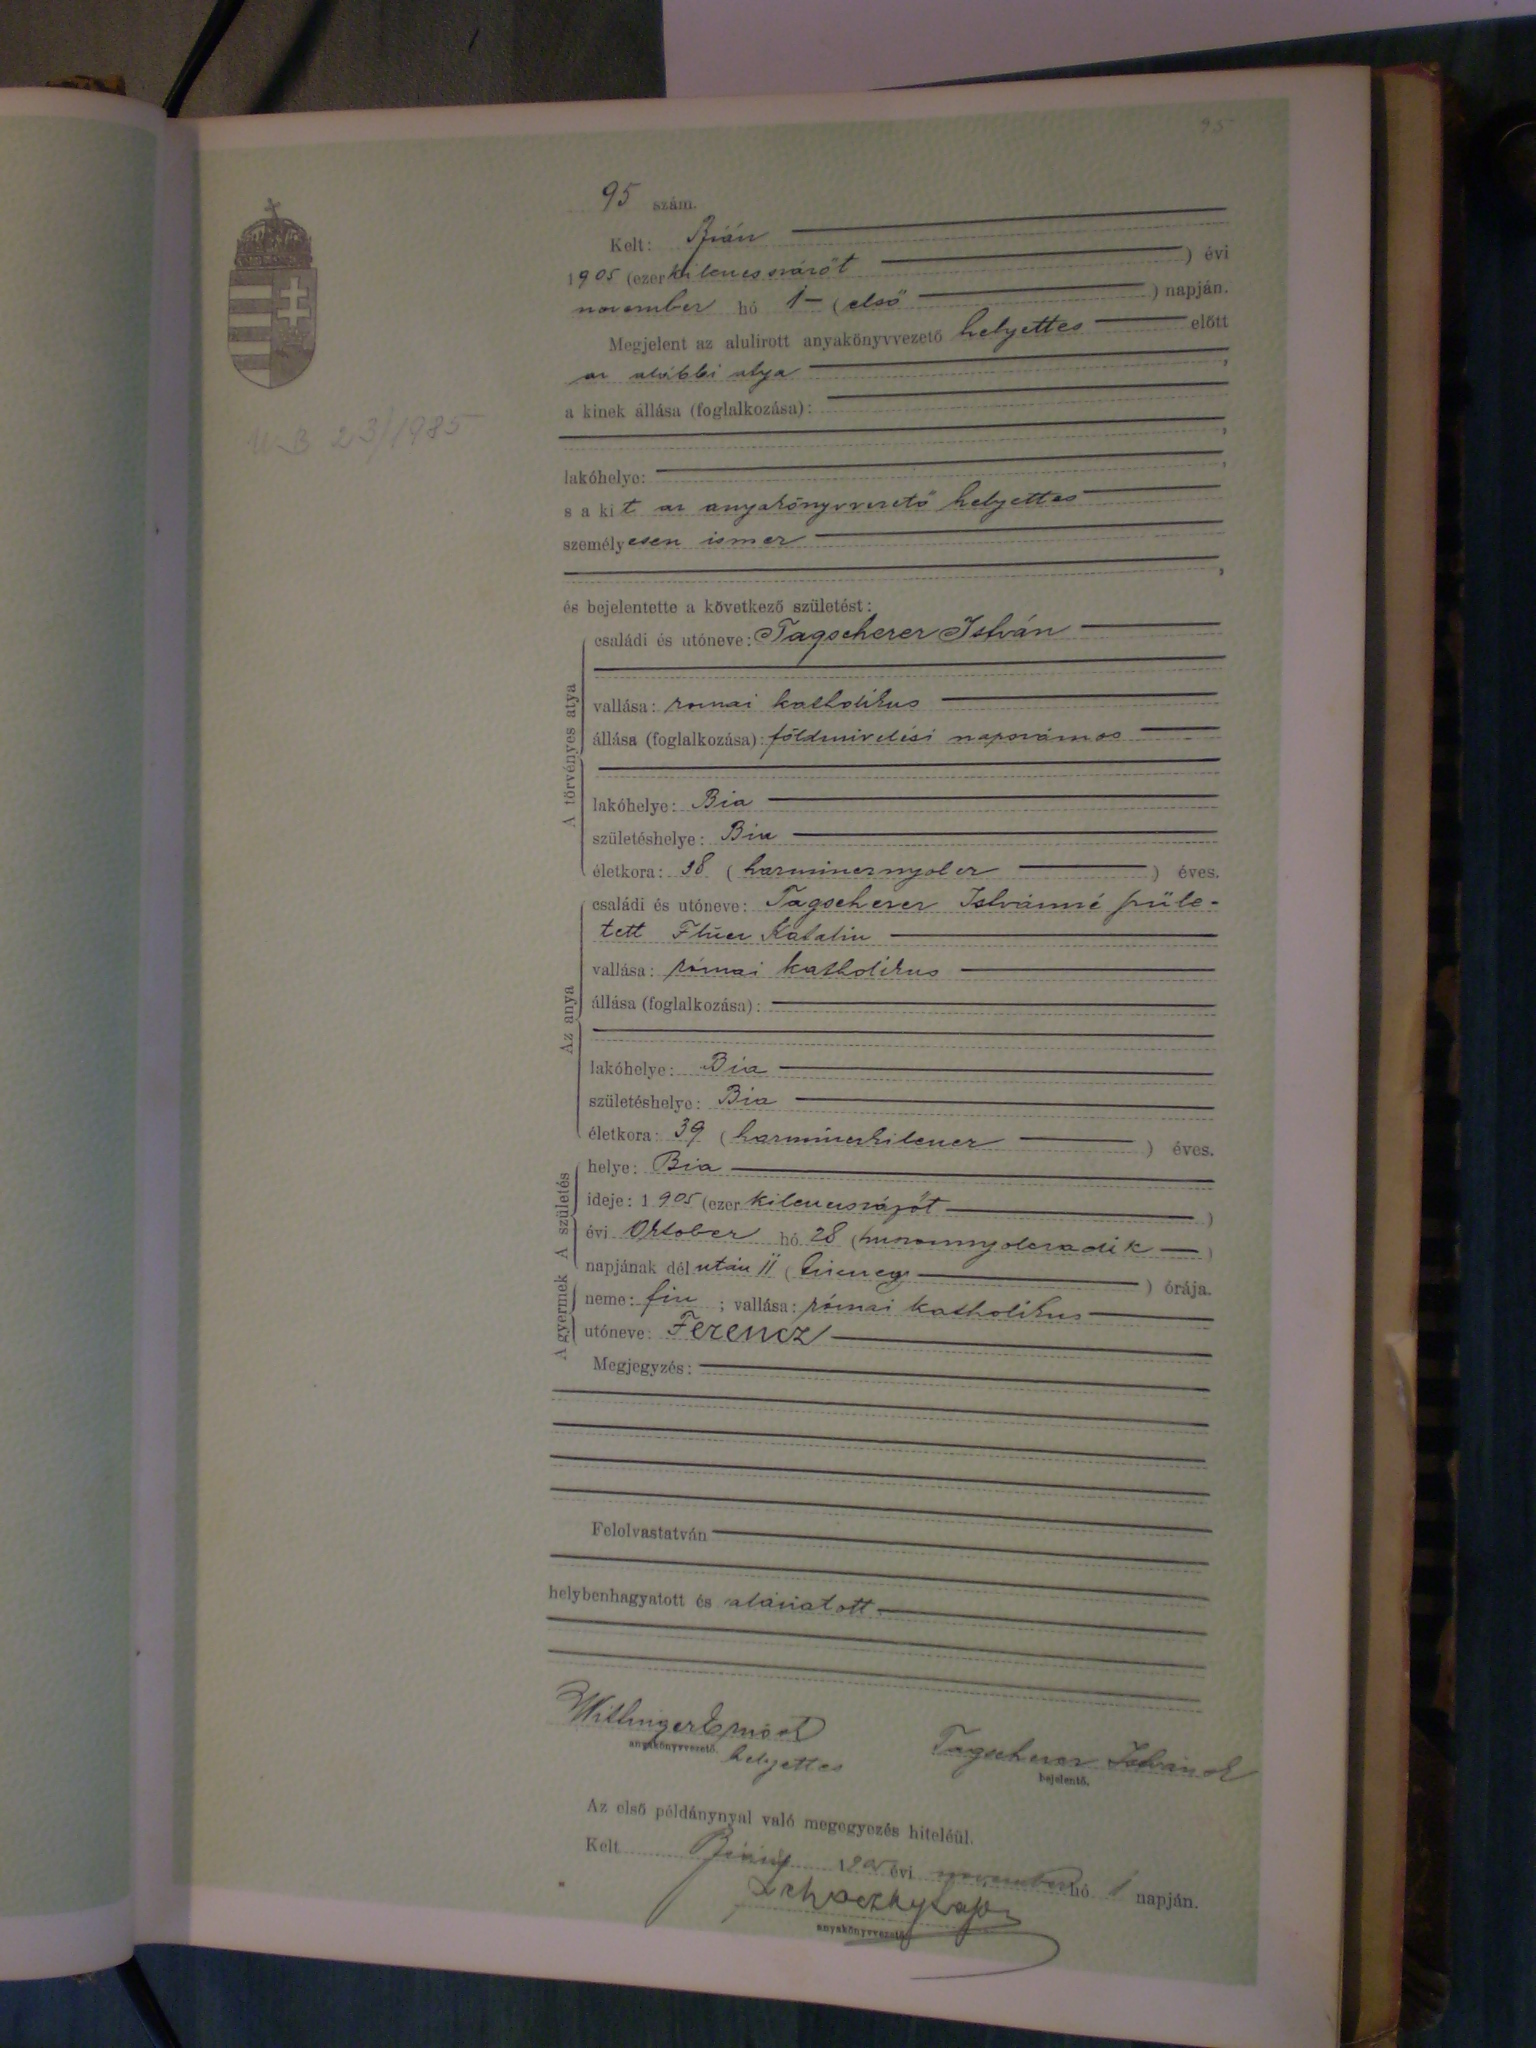 95
95 szám.
Kelt: Bián
1905 (ezer kilencszázöt ) évi
november hó 1 (első ) napján.
Megjelent az alulirott anyakönyvvezető helyettes előtt
az alábbi atya ,
a kinek állása (foglalkozása):
,
lakóhelye: ,
s a kit az anyakönyvvezető helyettes
személyesen ismer
,
és bejelentette a következő születést:
A törvényes atya
családi és utóneve: Tagscherer István
vallása: romai katholikus
állása (foglalkozása): földmivelési napszámos
lakóhelye: Bia
születéshelye: Bia
életkora: 38 (harmincznyolcz ) éves.
Az anya
családi és utóneve: Tagscherer Istvánné szüle-
tett Katalin
vallása: római katholikus
állása (foglalkozása):
lakóhelye: Bia
születéshelye: Bia
életkora: 39 (harminczkilencz ) éves.
A születés
helye: Bia
ideje: 1905 (ezer kilenczszázöt )
évi Október hó 28 (huszonnyolczadik )
napjának dél után 11 (tizenegy ) órája.
A gyermek
neme: fiu ; vallása: római katholikus
utóneve: Ferencz
Megjegyzés:
Felolvastatván
helybenhagyatott és aláiratott
Tagscherer István
anyakönyvvezető. helyettes
bejelentő.
Az első példánynyal való megegyezés hiteléül.
Kelt 1905 évi november hó 1 napján.
Lajos
anyakönyvvezető
23/1985